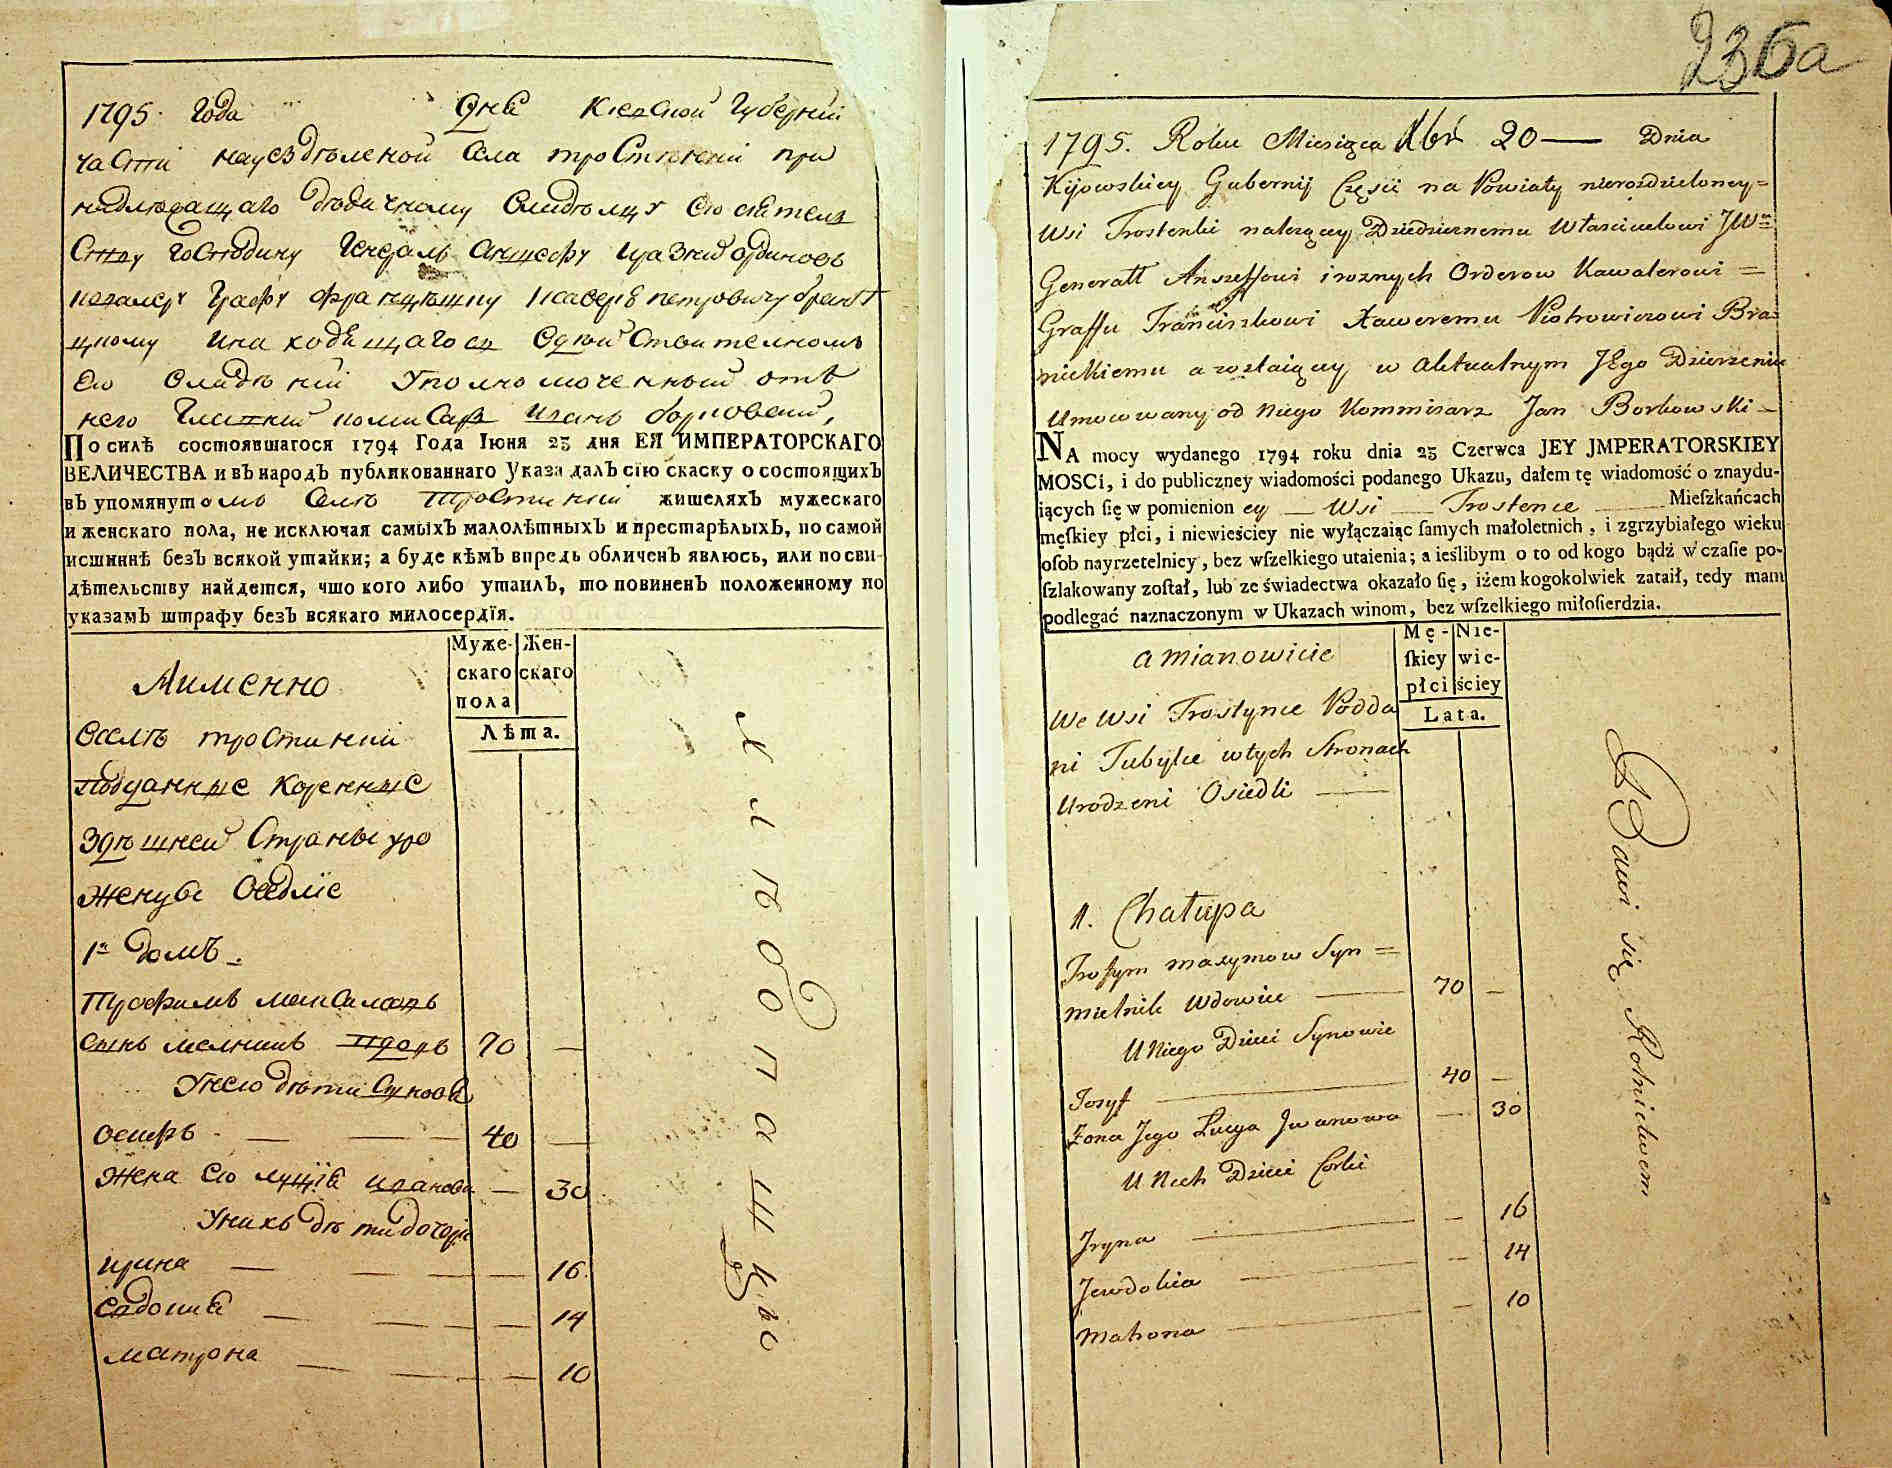 236а
1795. Года дня Киевской Губернїи
части неуезделеной Села тростинки при
надлежащаго дедичному Владелцу Его сиятелв
Ству Господину Генералъ Аншефу и разных ординовъ
кавалеру Графу францишку Ксаверию петровичу браниц
цкому и находящагося в действителномъ
Его Владении Уполномоченный отъ
него Комисаръ иванъ борковский,
По силѣ состоявшагося 1794 Года Іюня 23 дня ЕЯ ИМПЕРАТОРСКАГО
ВЕЛИЧЕСТВА и въ народъ публикованнаго Указа далъ сїю скаску о состоящихъ
въ упомянутомъ Селѣ Тростинки жителяхъ мужескаго
и женскаго пола, не исключая самыхъ малолѣтныхъ и престарѣлыхъ, по самой
истиннѣ безъ всякой утайки; а буде кѣмъ впредь обличенъ явлюсь, или по сви-
дѣтельству найдется, что кого либо утаилъ, то повиненъ положенному по
указамъ штрафу безъ всякаго милосердїя.
Муже-
скаго
пола
Жен-
скаго
Лѣта.
Аименно
Вселѣ тростинки
Подданные коренные
Здѣшней Страны уро
женцы Оседлїе
1й домъ.
Трофимъ максимовъ
сынъ мелникъ вдовъ 70 —
Унего дѣти Сыновя
осипъ — — — 40 —
Жена Его луцїя иванова — 30
Унихъ дѣти дочери
ирина — — — — 16.
Евдокия — — — — 14
матрона — — — 10
хлѣбопашцы
1795. Roku Miesiąca Xbr 20 — Dnia
Kijowskiey Gubernij Częsci na Powiaty nierozdzieloney=
Wsi Trostenki należącey Dziedzicznemu Włascicielowi JW
Generałł Anszeffowi i roznych Orderow Kawalerowi =
Graffu Franciszkowi Xaweremu Piotrowiczowi Bra=
nickiemu a zostaiącey w Aktualnym JEgo Dzierżeniu
Umocowany od Niego Kommisarz Jan Borkowski —
NA mocy wydanego 1794 roku dnia 23 Czerwca JEY JMPERATORSKIEY
MOSCi, i do publiczney wiadomości podanego Ukazu, dałem tę wiadomość o znaydu-
iących ſię w pomienion ey — Wsi — Trostence — Mieſzkańcach
męſkiey płci, i niewieściey nie wyłączaiąc ſamych małoletnich, i zgrzybiałego wieku
oſob nayrzetelniey, bez wſzelkiego utaienia; a ieślibym o to od kogo bądź w czaſie po-
ſzlakowany zoſtał, lub ze świadectwa okazało ſię, iżem kogokolwiek zataił, tedy mam
podlegać naznaczonym w Ukazach winom, bez wſzelkiego miłoſierdzia.
Mę-
ſkiey
płci
Nie-
wie-
ściey
Lata.
a mianowicie
We Wsi Trostynce Podda
ni Tubylce w tych Stronach
Urodzeni Osiedli —
1. Chałupa
Trofym maxymow Syn =
mielnik Wdowiec — 70 —
U Niego Dzieci Synowie
Josyf — 40 —
Żona Jego Lucya Jwanowa — 30
U Nich Dzieci Corki
Jryna — — 16
Jewdokia — — 14
matrona — — 10
Bawi się Rolnictwem